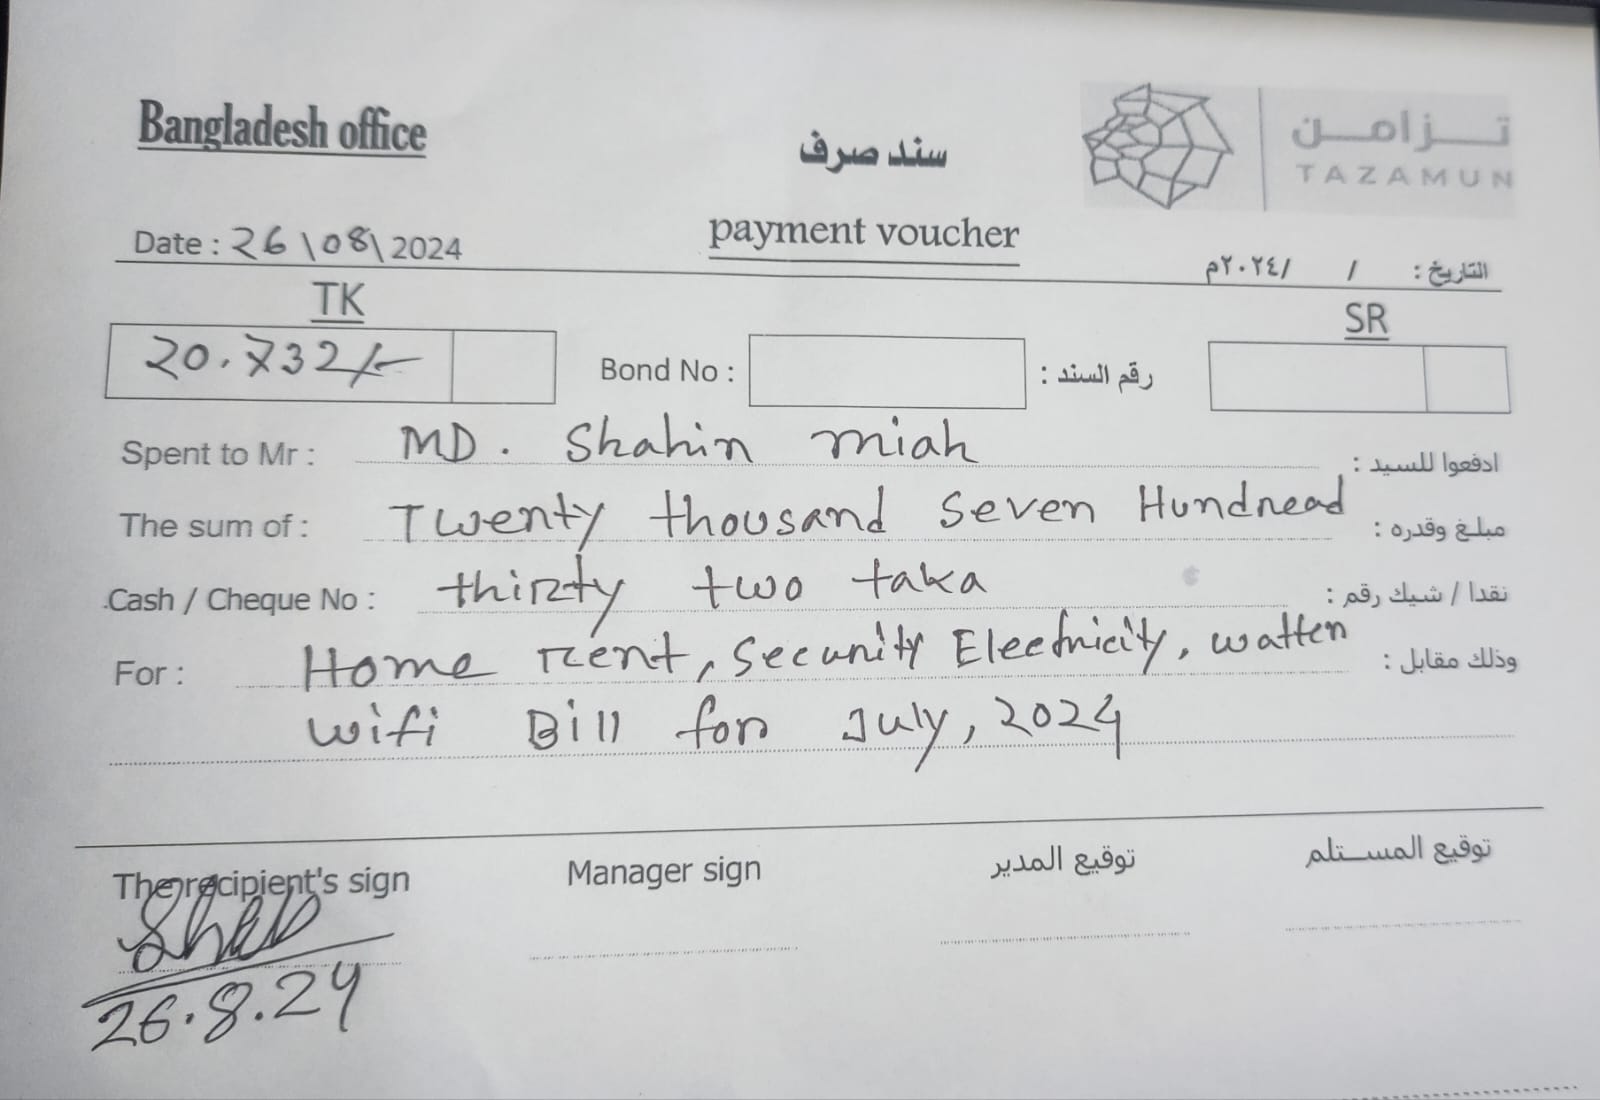 Bangladesh office
سند صرف
تزامن
TAZAMUN
payment voucher
Date : 26\08\2024
التاريخ : / /٢٠٢٤م
TK
SR
20.732/-
Bond No :
رقم السند :
Spent to Mr : MD. Shahin miah ادفعوا للسيد :
The sum of : Twenty thousand Seven Hundread مبلغ وقدره :
Cash / Cheque No : thirty two taka نقدا / شيك رقم :
For : Home rent, Security Electricity, watter وذلك مقابل :
wifi Bill for July, 2024
The recipient's sign Manager sign توقيع المدير توقيع المستلم
26.8.24